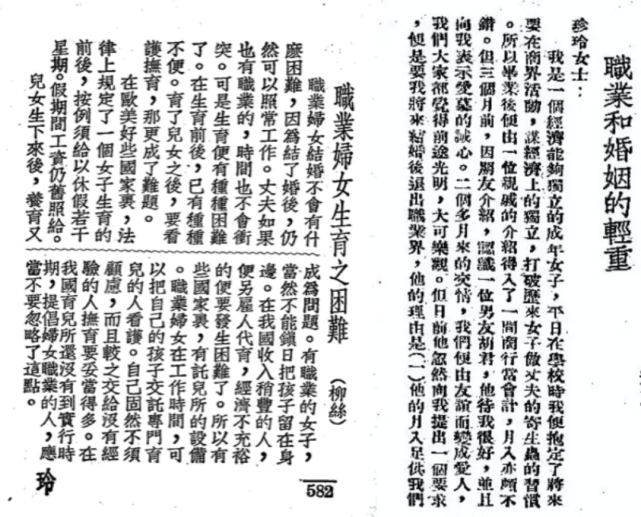 職業和婚姻的輕重
珍玲女士：
我是一個經濟能夠獨立的成年女子，平日在學校時我便抱定了將來
要在商界活動，謀經濟上的獨立，打破歷來女子做丈夫的寄生蟲的習慣
。所以畢業後便由一位親戚的介紹得入了一間商行當會計，月入亦頗不
錯。但三個月前，因朋友介紹，認識一位男友胡君，他待我很好，並且
向我表示愛慕的誠心。二個多月來的交情，我們便由友誼而變成愛人，
我們大家都覺得前途光明，大可樂觀。但日前他忽然向我提出一個要求
，便是要我將來結婚後退出職業界，他的理由是（一）他的月入足供我們
職業婦女生育之困難（柳絲）
職業婦女結婚不會有什
麽困難，因爲結了婚後，仍
然可以照常工作。丈夫如果
也有職業的，時間也不會衝
突。可是生育便有種種困難
了。在生育前後，已有種種
不便。育了兒女之後，要看
護撫育，那更成了難題。
在歐美好些國家裏，法
律上規定了一個女子生育的
前後，按例須給以休假若干
星期。假期間工資仍舊照給。
兒女生下來後，養育又
成爲問題。有職業的女子，
當然不能鎮日把孩子留在身
邊。在我國收入稍豐的人，
便另雇人代育，經濟不充裕
的便要發生困難了。所以有
些國家裏，有託兒所的設備
。職業婦女在工作時間，可
以把自己的孩子交託專門育
兒的人看護。自己固然不須
顧慮，而且較之交給沒有經
驗的人撫育要妥當得多。在
我國育兒所還沒有到實行時
期，提倡婦女職業的人，應
當不要忽略了這點。
玲
582